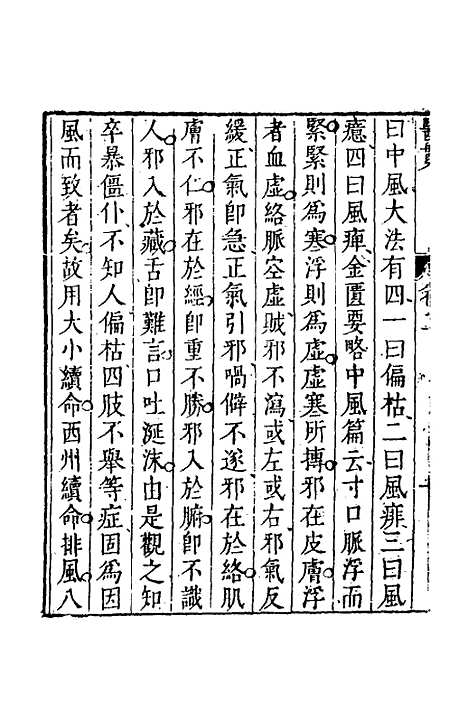 曰中風大法有四一曰偏枯二曰風痱三曰風
癔四曰風痺金匱要略中風篇云寸口脈浮而
緊緊則爲寒浮則爲虛虛寒所摶邪在皮膚浮
者血虛絡脈空虛賊邪不瀉或左或右邪氣反
緩正氣卽急正氣引邪喎僻不遂邪在於絡肌
膚不仁邪在於經卽重不勝邪入於腑卽不識
人邪入於藏舌卽難言口吐涎沫由是觀之知
卒暴僵仆不知人偏枯四肢不舉等症固爲因
風而致者矣故用大小續命西州續命排風八